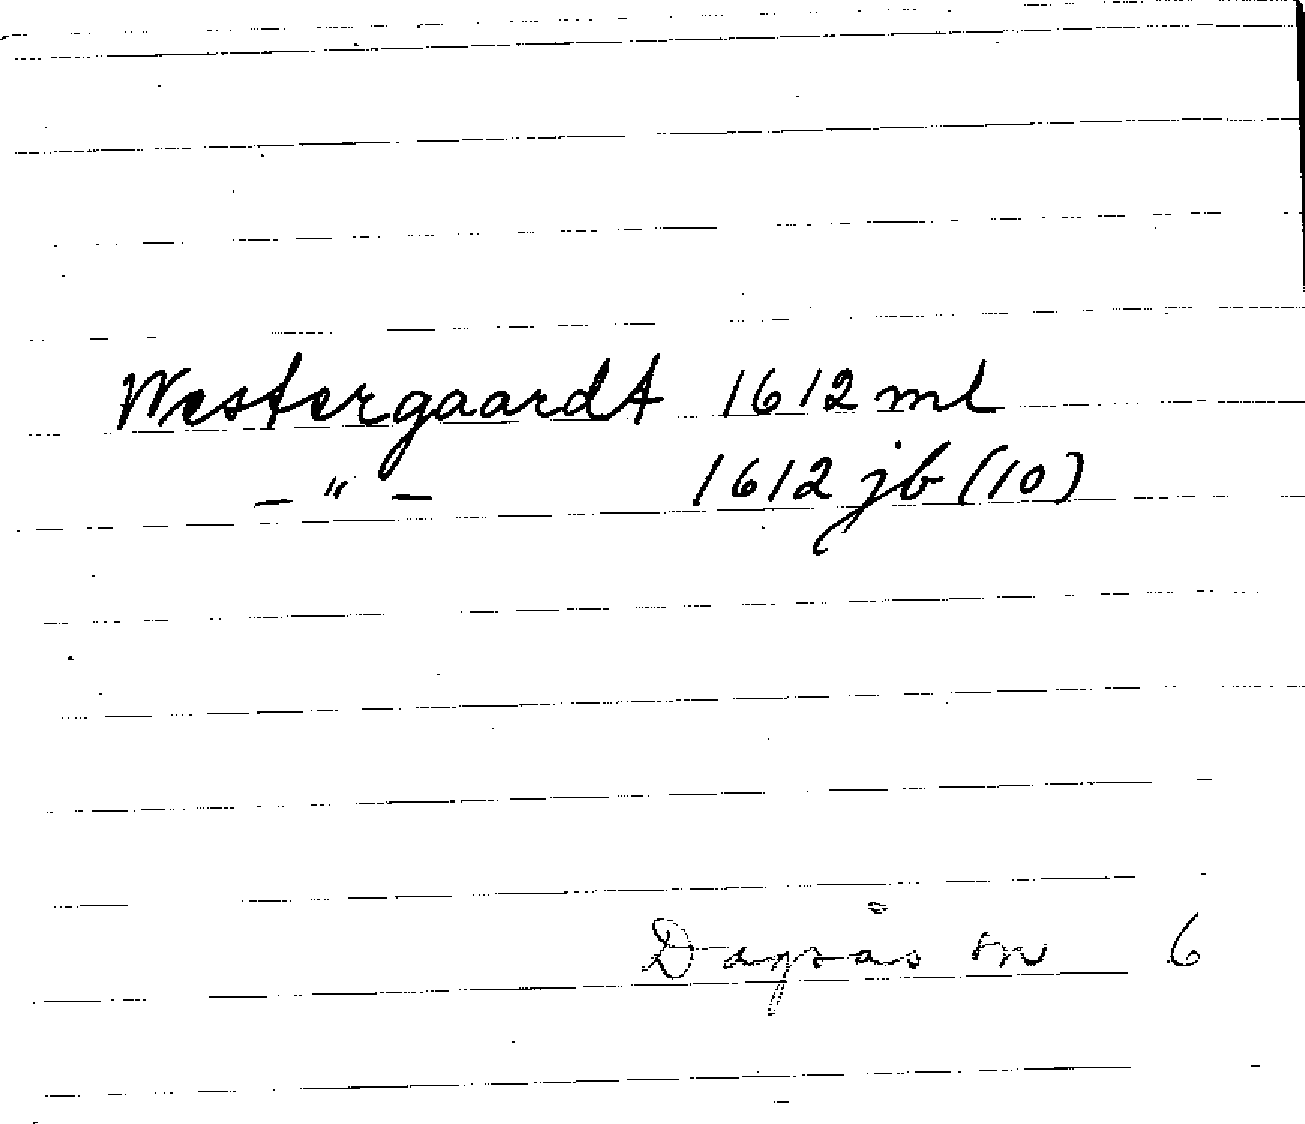 Westergaardt 1612 ml
– " – 1612 jb (10)
Dagsås sn 6